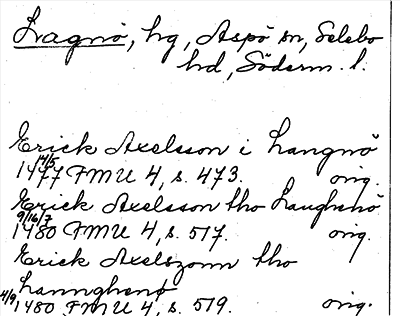 Lagnö, hg, Aspö sn, Selebo
hd, Söderm. l.
Erick Axelsson i Langnö
14/5
1477 FMU 4, s. 473. orig.
Erick Axelsson tho Laughenö
9/16/7
1480 FMU 4, s. 517. orig.
Erick Axelszonn tho
Lannghenö
4/9 1480 FMU 4, s. 519. orig.